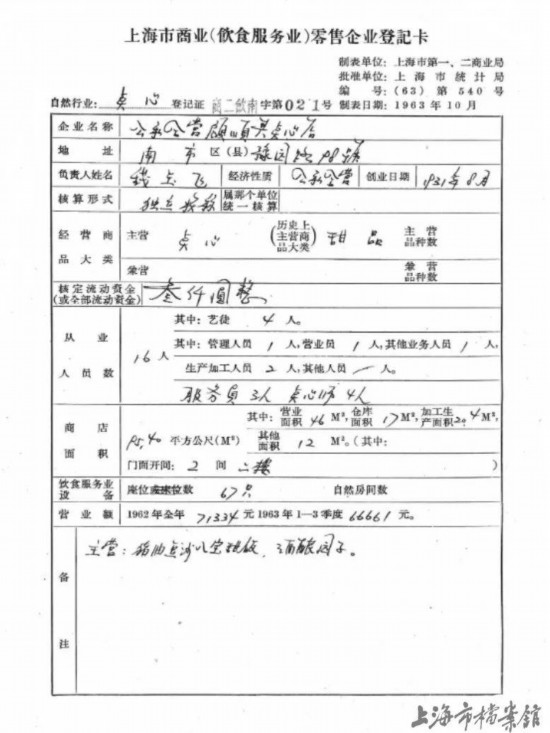 上海市商业(飲食服务业)零售企业登記卡
制表单位：上海市第一、二商业局
批准单位：上海市統計局
編号：(63)第540号
自然行业：点心 登记证 商二飲南字第021号 制表日期：1963年10月
企业名称 公私合营顺兴点心店
地址 南市区(县)豫园路98號
負責人姓名 钱点飞 經济性质 公私合营 創业日期 1931年8月
核算形式 独立核算 属那个单位統一核算
經营商品大类 主营 点心 (历史上主营商品大类) 甜品 主营品种数
兼营 兼营品种数
核定流动資金(或全部流动資金) 叁仟圆整
从业人員数 16人 其中：艺徒 4人。
其中：管理人員1人，营业員1人，其他业务人員1人，
生产加工人員2人，其他人員一人。
服务員3人 点心师4人
商店面积 平方公尺(M²) 其中：营业面积46M²，仓库面积17M²，加工生产面积20.4M²，
其他面积12M²。(其中：
門面开間：2間 二楼 )
飲食服务业设备 座位或床位数 67只 自然房間数
营业額 1962年全年71334元 1963年1—3季度66661元。
备注 主营：猪油 八宝 飯、酒酿园子。
上海市檔案館